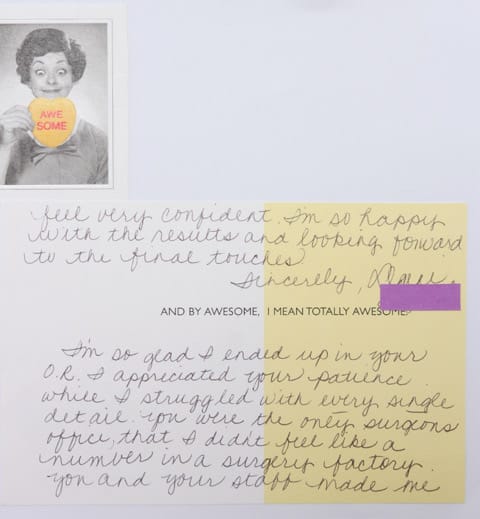 AWE
SOME
feel very confident. I'm so happy
with the results and looking forward
to the final touches
Sincerely,
AND BY AWESOME, I MEAN TOTALLY AWESOME.
I'm so glad I ended up in your
O.R. I appreciated your patience
while I struggled with every single
detail. you were the only surgeons
office, that I didnt feel like a
number in a surgery factory.
you and your staff made me